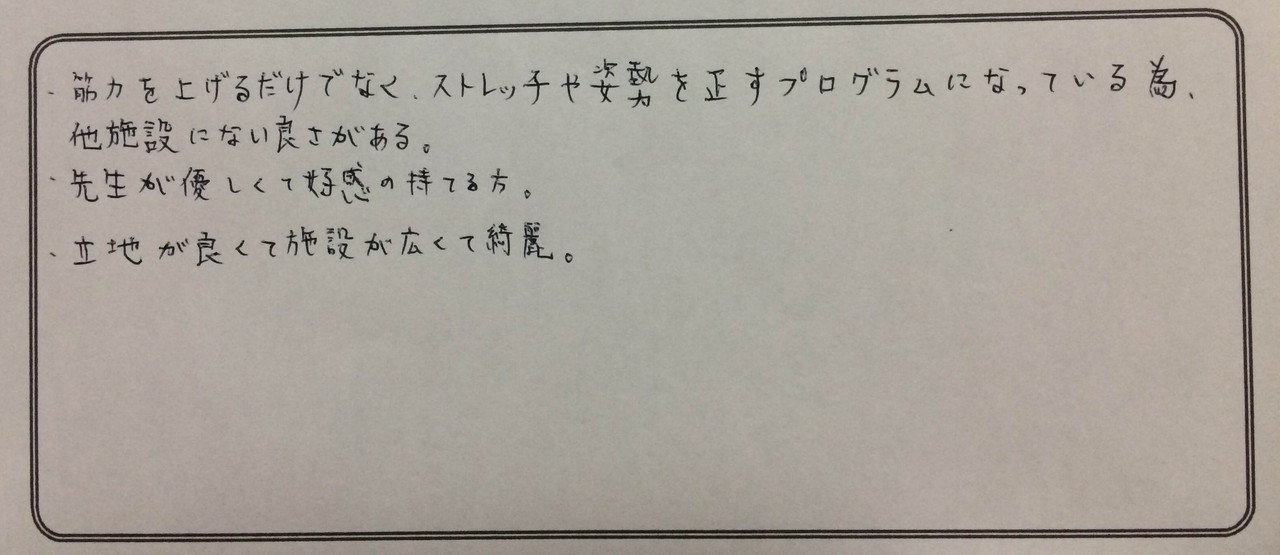 ・筋力を上げるだけでなく、ストレッチや姿勢を正すプログラムになっている為、
他施設にない良さがある。
・先生が優しくて好感の持てる方。
・立地が良くて施設が広くて綺麗。